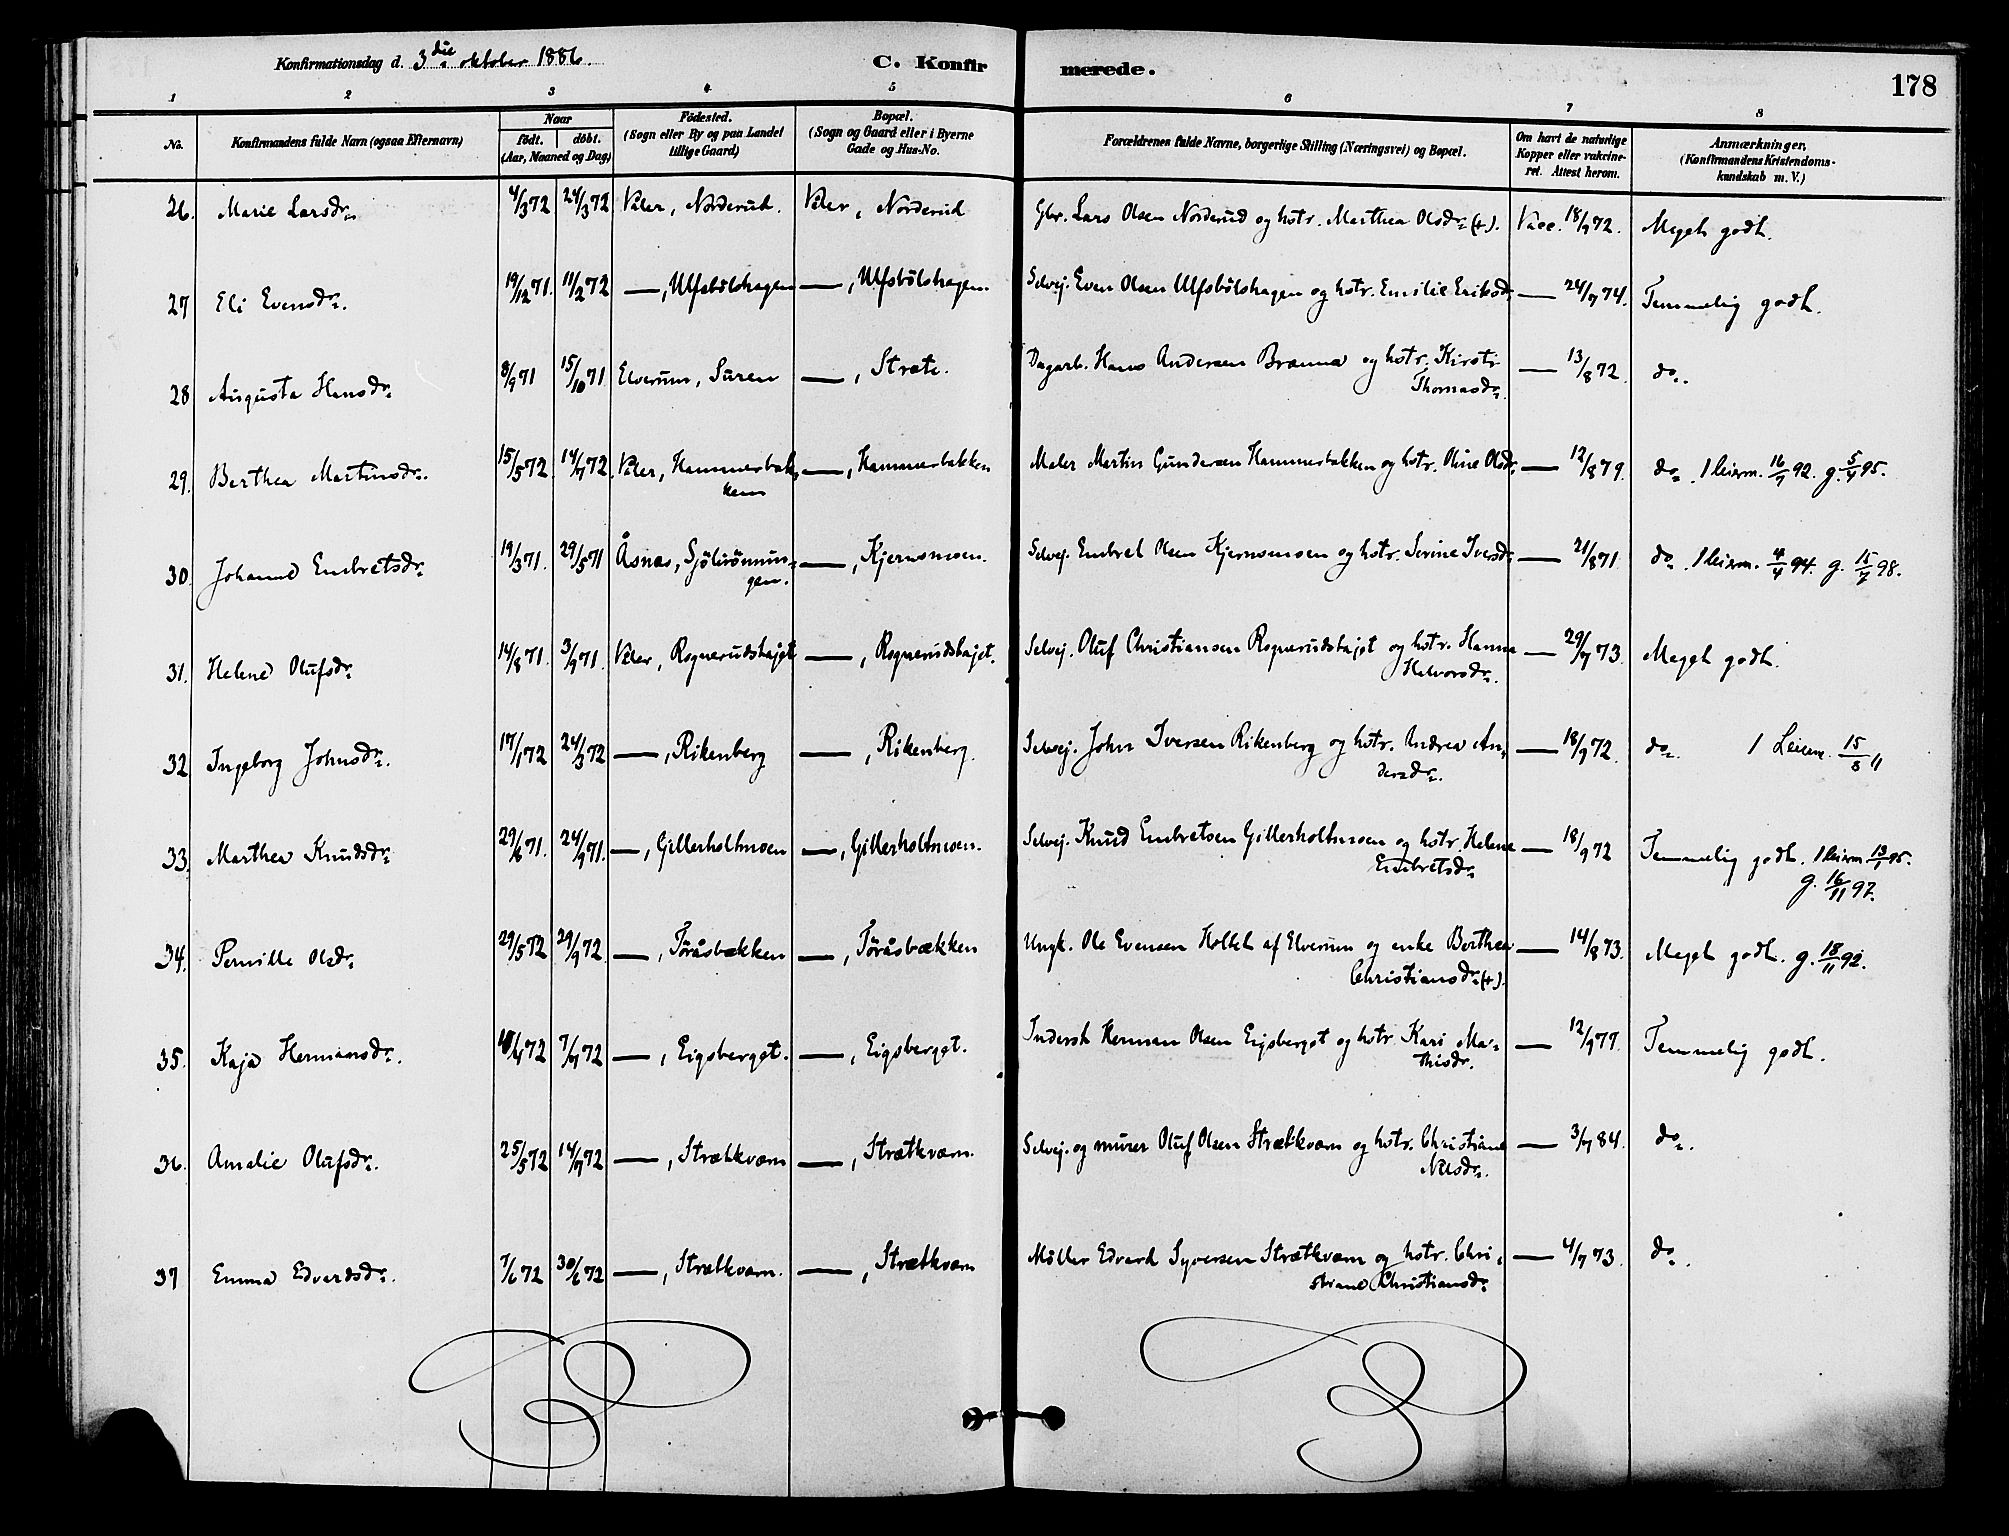 Konfirmationsdag d. 3die oktober 1886.
C. Konfirmerede.
178
1 2 3 4 5 6 7 8
No. Konfirmandens fulde Navn (ogsaa Efternavn) Naar födt. döbt. (Aar, Maaned og Dag) Födested. (Sogn eller By og paa Landet tillige Gaard) Bopæl. (Sogn og Gaard eller i Byerne Gade og Hus-No. Forældrenes fulde Navne, borgerlige Stilling (Næringsvei) og Bopæl. Om havt de naturlige Kopper eller vakcineret. Attest herom. Anmærkninger, (Konfirmandens Kristendomskundskab m. V.)
26. Marie Larsdr. 4/3 72 24/3 72 Våler, Norderud. Våler, Norderud Gbr. Lars Olsen Norderud og hstr. Marthea Olsdr. (+). Vacc. 18/9 72. Meget godt.
27 Eli Evensdr. 19/12 71. 11/2 72 —, Ulfsbölshagen —, Ulfsbölshagen. Selvej. Even Olsen Ulfsbölshagen og hstr. Emilie Eriksdr. — 24/7 74. Temmelig godt.
28 Augusta Hansdr. 8/9 71 15/10 71. Elverum, Süren —, Stræte. Dagarb. Hans Andersen Brænna og hstr. Kirsti
Thomasdr. — 13/8 72. do.
29. Berthea Martinsdr. 15/5 72 14/7 72. Våler, Hammerbak-
ken —, Hammerbakken Maler Martin Gundersen Hammerbakken og hstr. Oline Olsdr. — 12/8 79. do. 1 leierm. 16/7 92. g. 5/4 95.
30. Johanne Embretsdr. 19/3 71. 29/5 71 Åsnæs,
gen. —, Kjernsmoen. Selvej. Embret Olsen Kjernsmoen og hstr. Serine Iversdr. — 21/8 71. do. 1 leierm. 4/4 94. g. 15/7 98.
31. Helene Olufsdr. 14/8 71. 3/9 71. Våler, Rognerudshajet —, Rognerudshajet. Selvej. Oluf Christiansen Rognerudshajet og hstr. Hanna
Halvorsdr. — 29/7 73. Meget godt.
32 Ingeborg Johnsdr. 17/1 72 24/3 72 —, Rikenberg —, Rikenberg. Selvej. John Iversen Rikenberg og hstr. Andrea An-
dersdr. — 18/9 72. do. 1 Leierm. 15/8 11
33. Marthea Knudsdr. 29/6 71. 24/9 71. —, Gillerholtmoen —, Gillerholtmoen. Selvej. Knud Embretsen Gillerholtmoen og hstr. Helene
Embretsdr. — 18/9 72 Temmelig godt. 1 leierm 13/1 95.
g. 16/11 97.
34. Pernille Olsdr. 29/5 72 29/9 72. —, Töråsbækken —, Töråsbækken Ungk. Ole Evensen Holtet af Elverum og enke Berthea
Christiansdr. (+). — 14/8 73. Meget godt. g. 18/11 92.
35. Kaja Hermansdr. 72 7/7 72 —, Eigsberget. —, Eigsberget. Inderst Herman Olsen Eigsberget og hstr. Kari Ma-
thisdr. — 12/9 77. Temmelig godt.
36. Amalie Olufsdr. 25/5 72 14/7 72 —, Strætkværn —, Strætkværn. Selvej. og murer Oluf Olsen Strætkværn og hstr. Christiane
Nilsdr. — 3/7 84. do.
37 Emma Edvardsdr. 7/6 72 30/6 72 —, Strætkværn. —, Strætkværn Möller Edvard Syversen Strætkværn og hstr. Chri-
stiane Christiansdr. — 4/7 73. do.